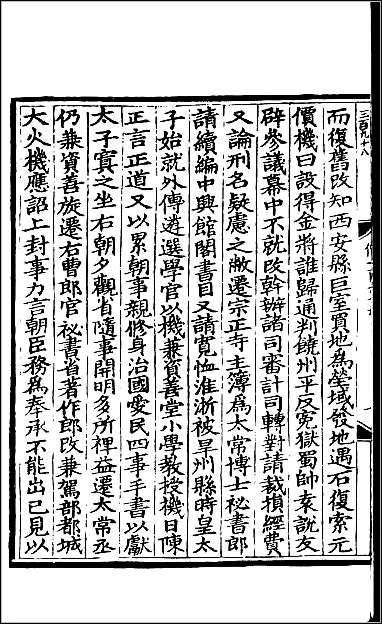 而復舊改知西安縣巨室買地為塋域發地遇石復索元
價機曰設得金將誰歸通判饒州平反冤獄蜀帥袁說友
辟參議幕中不就改幹辦諸司審計司轉對請裁損經費
又論刑名疑慮之敝遷宗正寺主簿為太常博士秘書郎
請續編中興館閣書目又請寬恤淮浙被旱州縣時皇太
子始就外傅遴選學官以機兼資善堂小學教授機日陳
正言正道又以累朝事親修身治國愛民四事手書以獻
太子寘之坐右朝夕觀省隨事開明多所裨益遷太常丞
仍兼資善旋遷右曹郎官秘書省著作郎改兼駕部都城
大火機應詔上封事力言朝臣務為奉承不能出己見以
三百九十八